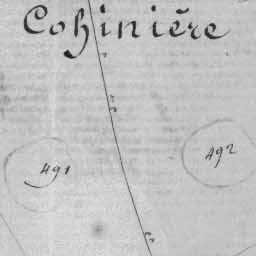 Cohinière
492
491